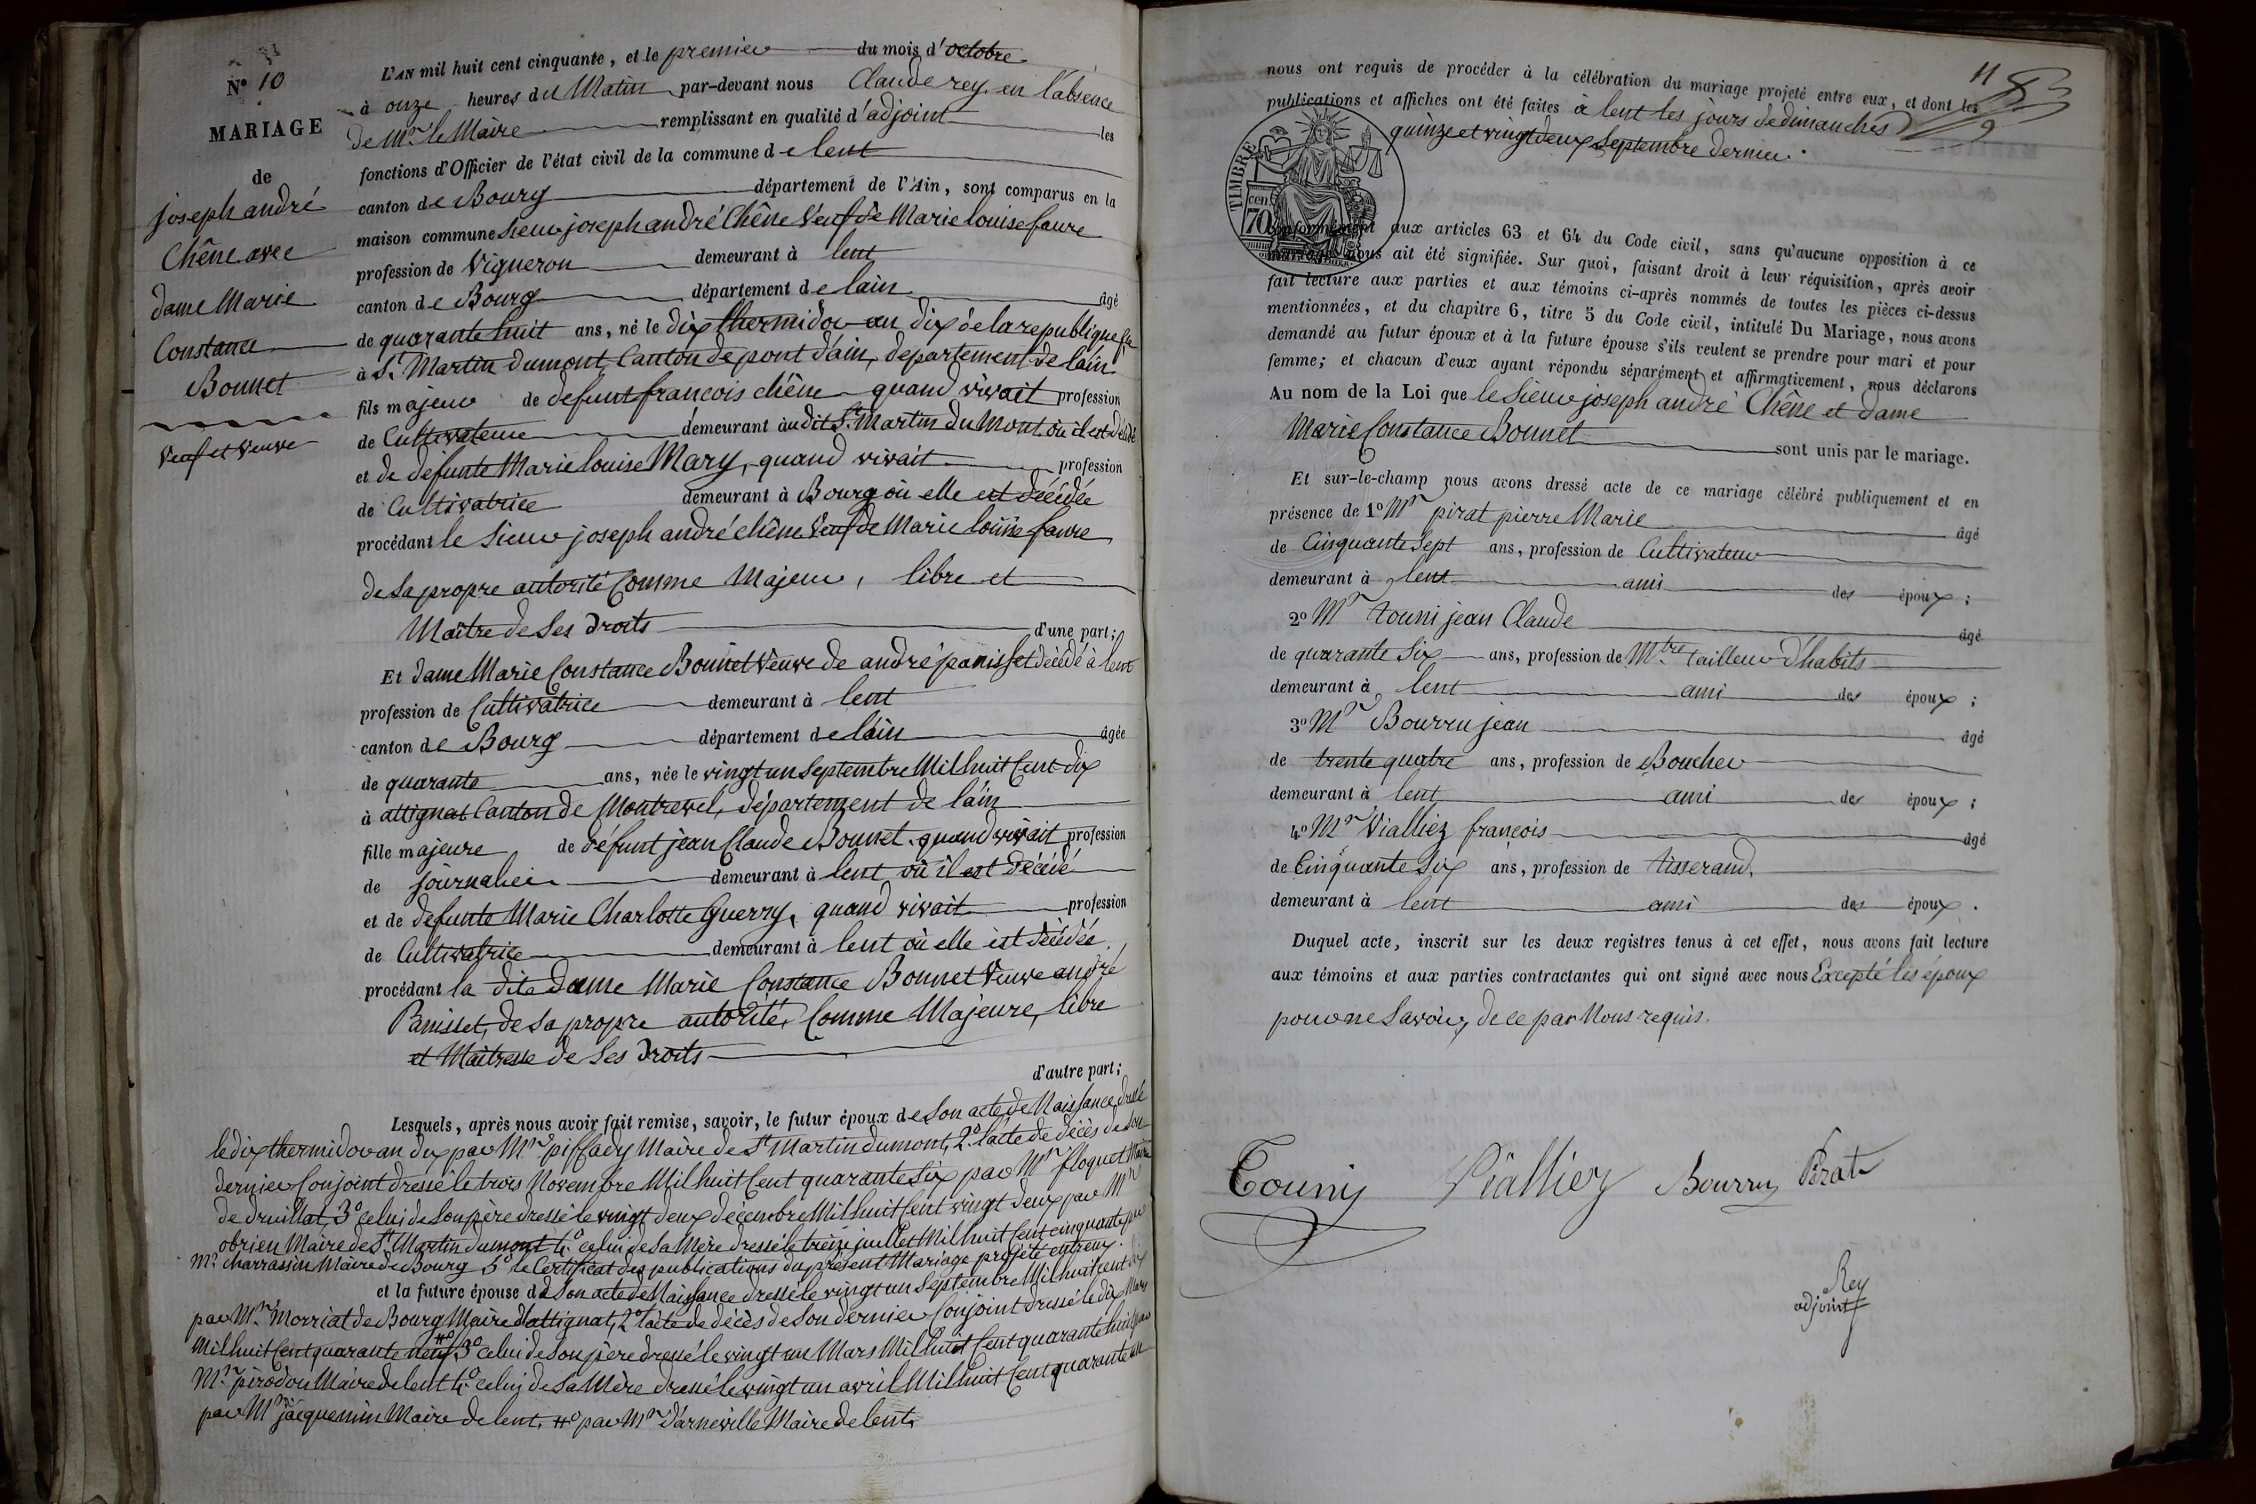 N° 10
MARIAGE
de
joseph andré
Chêne avec
dame Marie
Constance
Bonnet
Veuf et Veuve
L'AN mil huit cent cinquante, et le premier du mois d'octobre
à onze heures du Matin par-devant nous Claude rey en l'absence
de Mr. le Maire remplissant en qualité d'adjoint les
fonctions d'Officier de l'état civil de la commune de lent
canton de Bourg département de l'Ain, sont comparus en la
maison commune Sieur joseph andré Chêne Veuf de Marie louise favre
profession de Vigneron demeurant à lent
canton de Bourg département de lain âgé
de quarante huit ans, né le dix thermidor an dix de la republique
à St. Martin dumont, Canton de pont dain, departement de lain
fils majeur de defunt francois chêne quand vivait profession
de Cultivateur demeurant audit St. Martin du Mont où il est décédé
et de défunte Marie louise Mary, quand vivait profession
de Cultivatrice demeurant à Bourg où elle est décédée
procédant le Sieur joseph andré chêne Veuf de Marie louise favre
de sa propre autorité Comme Majeur, libre et
Maître de ses droits d'une part;
Et dame Marie Constance Bonnet Veuve de andré panisset décédé à lent
profession de Cultivatrice demeurant à lent
canton de Bourg département de lain âgée
de quarante ans, née le vingt un Septembre Mil huit Cent dix
à attignat Canton de Montrevel, département de lain
fille majeure de défunt jean Claude Bonnet quand vivait profession
de journalier demeurant à lent où il est décédé
et de defunte Marie Charlotte Guerry, quand vivait profession
de Cultivatrice demeurant à lent où elle est décédée
procédant la dite dame Marie Constance Bonnet Veuve andré
Panisset, de sa propre autorité, Comme Majeure, libre
et Maitresse de ses droits
d'autre part;
Lesquels, après nous avoir fait remise, savoir, le futur époux de son acte de Naissance dressé
le dix thermidor an dix par Mr. piffady Maire de St Martin dumont, 2° l'acte de décès de son
dernier Conjoint dressé le trois Novembre Mil huit Cent quarante six par Mr floquet Maire
de druillat, 3° celui de son père dressé le vingt deux décembre Mil huit Cent vingt deux par Mr
obrien Maire de St Martin dumont 4° celui de sa Mère dressé le treize juillet Mil huit Cent cinquante par
Mr. charrassin Maire de Bourg 5° le Certificat des publications du présent Mariage projeté entreux.
et la future épouse de son acte de Naissance dressé le vingt un Septembre Mil huit cent dix
par Mr. Morriat de Bourg Maire d'attignat, 2° l'acte de décès de son dernier Conjoint dressé le dix Mars
Mil huit Cent quarante neuf # 3° celui de son père dressé le vingt un Mars Mil huit Cent quarante huit par
Mr. pirodon Maire de lent 4° celui de sa Mère dressé le vingt un avril Mil huit Cent quarante un
par Mr jacquemin Maire de lent. # par Mr d'arneville Maire de lent.
11
nous ont requis de procéder à la célébration du mariage projeté entre eux, et dont les
publications et affiches ont été faites à lent les jours de dimanches
quinze et vingt deux Septembre dernier.
TIMBRE
70 cen.
conformément aux articles 63 et 64 du Code civil, sans qu'aucune opposition à ce
mariage nous ait été signifiée. Sur quoi, faisant droit à leur réquisition, après avoir
fait lecture aux parties et aux témoins ci-après nommés de toutes les pièces ci-dessus
mentionnées, et du chapitre 6, titre 5 du Code civil, intitulé Du Mariage, nous avons
demandé au futur époux et à la future épouse s'ils veulent se prendre pour mari et pour
femme; et chacun d'eux ayant répondu séparément et affirmativement, nous déclarons
Au nom de la Loi que le Sieur joseph andré Chêne et dame
Marie Constance Bonnet sont unis par le mariage.
Et sur-le-champ nous avons dressé acte de ce mariage célébré publiquement et en
présence de 1° Mr pirat pierre Marie âgé
de Cinquante sept ans, profession de Cultivateur
demeurant à lent ami des époux;
2° Mr touni jean Claude âgé
de quarante six ans, profession de Mtre tailleur d'habits
demeurant à lent ami des époux;
3° Mr Bourru jean âgé
de trente quatre ans, profession de Boucher
demeurant à lent ami des époux;
4° Mr Vialliez francois âgé
de Cinquante Six ans, profession de tisserand
demeurant à lent ami des époux.
Duquel acte, inscrit sur les deux registres tenus à cet effet, nous avons fait lecture
aux témoins et aux parties contractantes qui ont signé avec nous Excepté les époux
pour ne savoir, de ce par Nous requis.
Touny Vialliez Bourru Pirat
Rey
adjoint